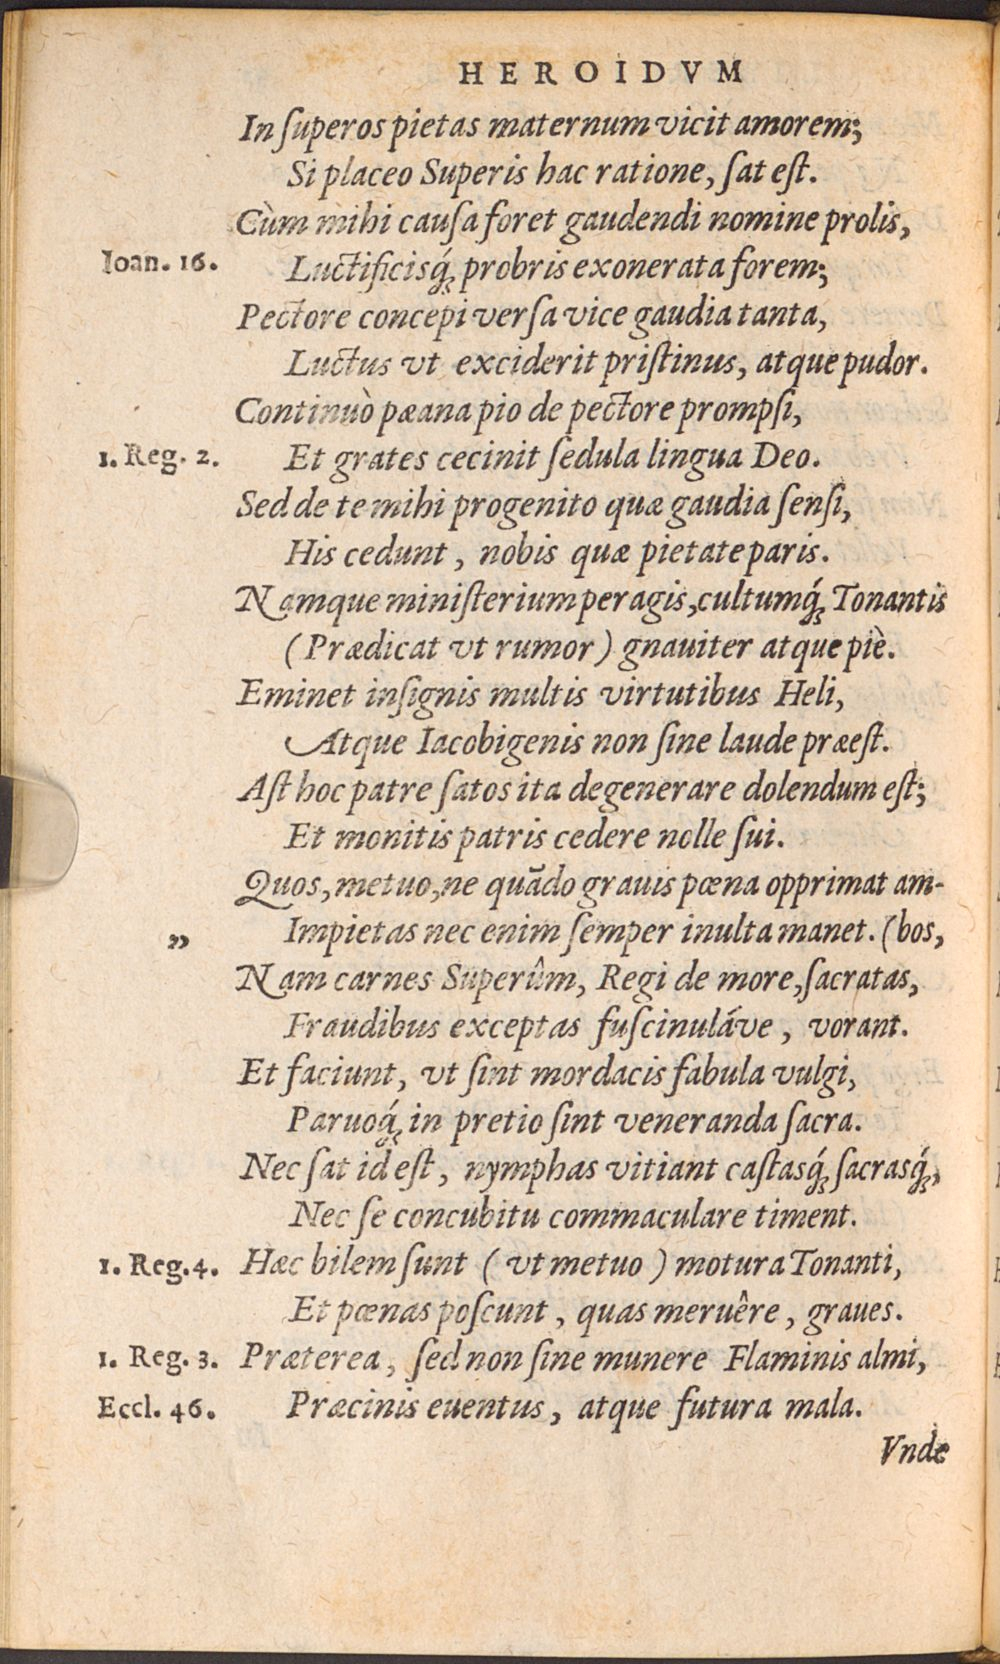 HEROIDVM
In ſuperos pietas maternum vicit amorem;
Si placeo Superis hac ratione, ſat eſt.
Cùm mihi cauſa foret gaudendi nomine prolis,
Ioan. 16. Luctificisq́; probris exonerata forem;
Pectore concepi verſa vice gaudia tanta,
Luctus vt exciderit priſtinus, atque pudor.
Continuò pæana pio de pectore prompſi,
1. Reg. 2. Et grates cecinit ſedula lingua Deo.
Sed de te mihi progenito quæ gaudia ſenſi,
His cedunt, nobis quæ pietate paris.
Namque miniſterium peragis, cultumq́; Tonantis
(Prædicat vt rumor) gnauiter atque piè.
Eminet inſignis multis virtutibus Heli,
Atque Iacobigenis non ſine laude præeſt.
Aſt hoc patre ſatos ita degenerare dolendum eſt;
Et monitis patris cedere nolle ſui.
Quos, metuo, ne quãdo grauis pœna opprimat am-
„ Impietas nec enim ſemper inulta manet. (bos,
Nam carnes Superûm, Regi de more, ſacratas,
Fraudibus exceptas fuſcinuláve, vorant.
Et faciunt, vt ſint mordacis fabula vulgi,
Paruoq́; in pretio ſint veneranda ſacra.
Nec ſat id eſt, nymphas vitiant caſtasq́; ſacrasq́;,
Nec ſe concubitu commaculare timent.
1. Reg. 4. Hæc bilem ſunt (vt metuo) motura Tonanti,
Et pœnas poſcunt, quas meruêre, graues.
1. Reg. 3. Præterea, ſed non ſine munere Flaminis almi,
Eccl. 46. Præcinis euentus, atque futura mala.
Vnde